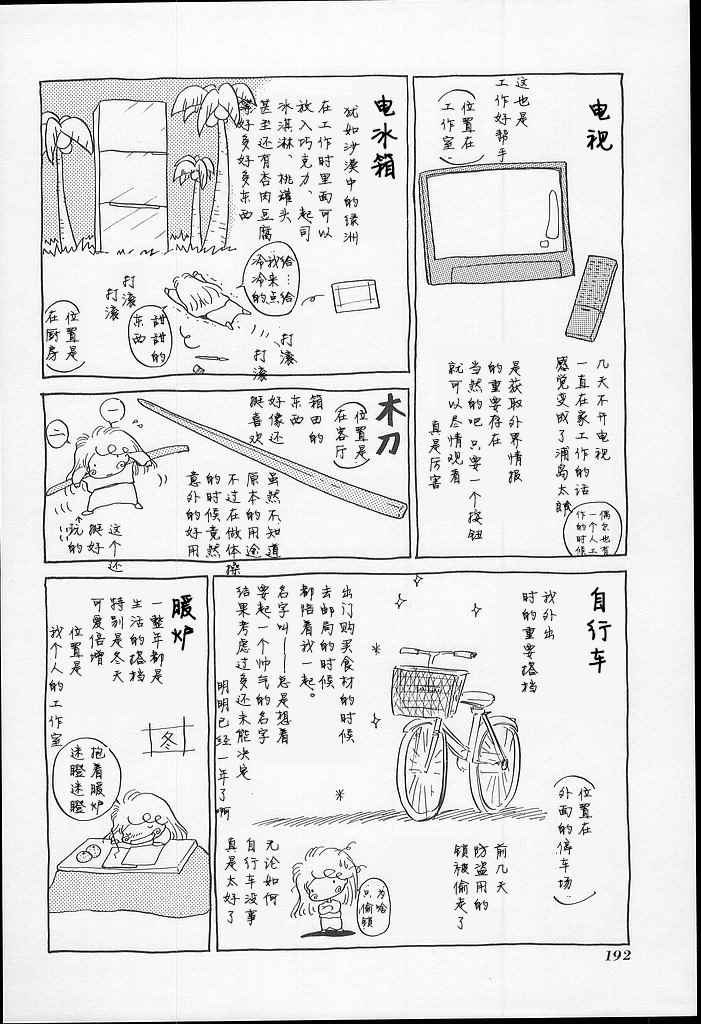 电视
这也是
工作好帮手
位置在
工作室.
几天不开电视
一直在家工作的话
感觉变成了浦岛太郎
是获取外界情报
的重要存在
当然的吧 只要一个按钮
就可以尽情观看
真是厉害
偶尔也有
一个人工
作的时候
电冰箱
犹如沙漠中的绿洲
在工作时里面可以
放入巧克力、起司
冰淇淋、桃罐头
甚至还有杏肉豆腐
等好多好多东西
给…给
我来点
冷冷的
甜甜的
东西
打滚
打滚
打滚
打滚
位置是
在厨房
木刀
位置是
在客厅.
箱田的
东西
好像还
挺喜欢
虽然不知道
原本的用途
不过在做体操
的时候竟然
意外的好用
一
二
这个还
挺好
玩的
自行车
我外出
时的重要搭档
位置在
外面的停车场.
出订购买食材的时候
去邮局的时候
都陪着我一起。
名字叫——总是想着
要起一个帅气的名字
结果考虑过多还未能决定
明明已经一年了啊
前几天
防盗用的
锁被偷走了
为啥
只偷锁
无论如何
自行车没事
真是太好了
暖炉
一整年都是
生活的搭档
特别是冬天
可爱倍增
位置是
我个人的工作室
冬
抱着暖炉
迷瞪迷瞪
192